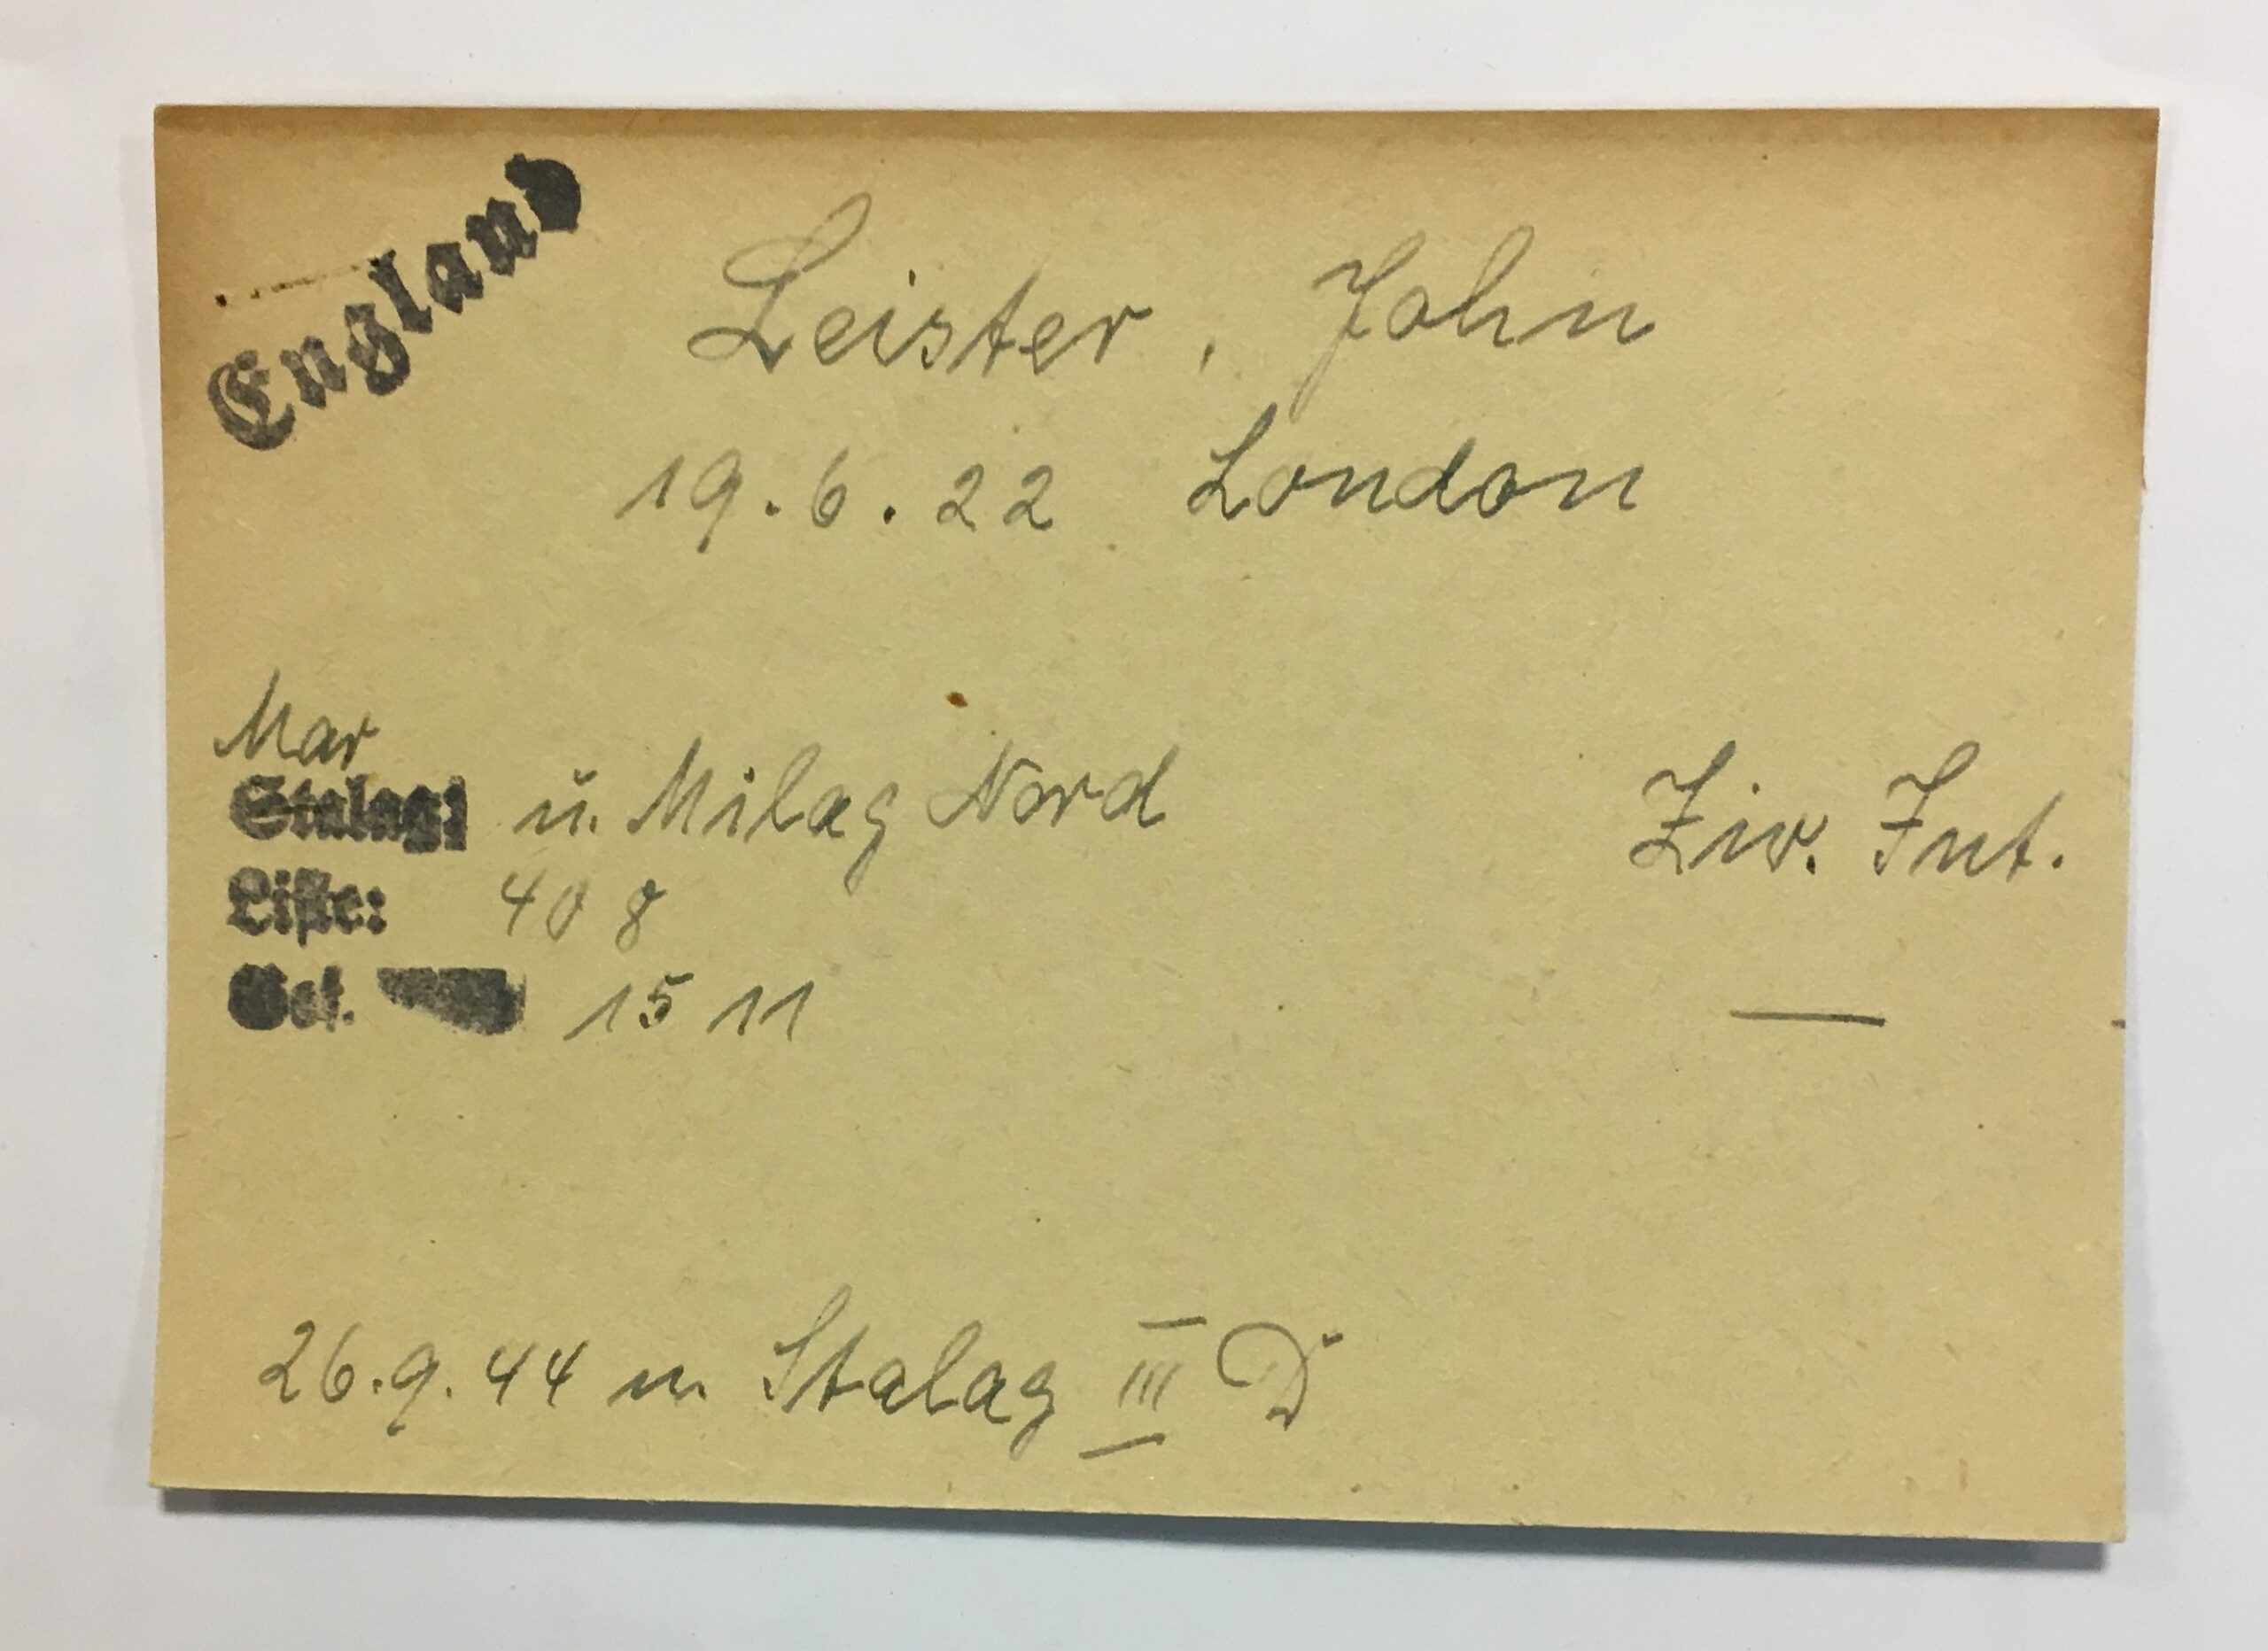 England
Leister, John
19.6.22 London
Mar
Stalag: u. Milag Nord Ziv. Int.
Liste: 40 8
Gef. 15 11
—
26.9.44 n. Stalag III D